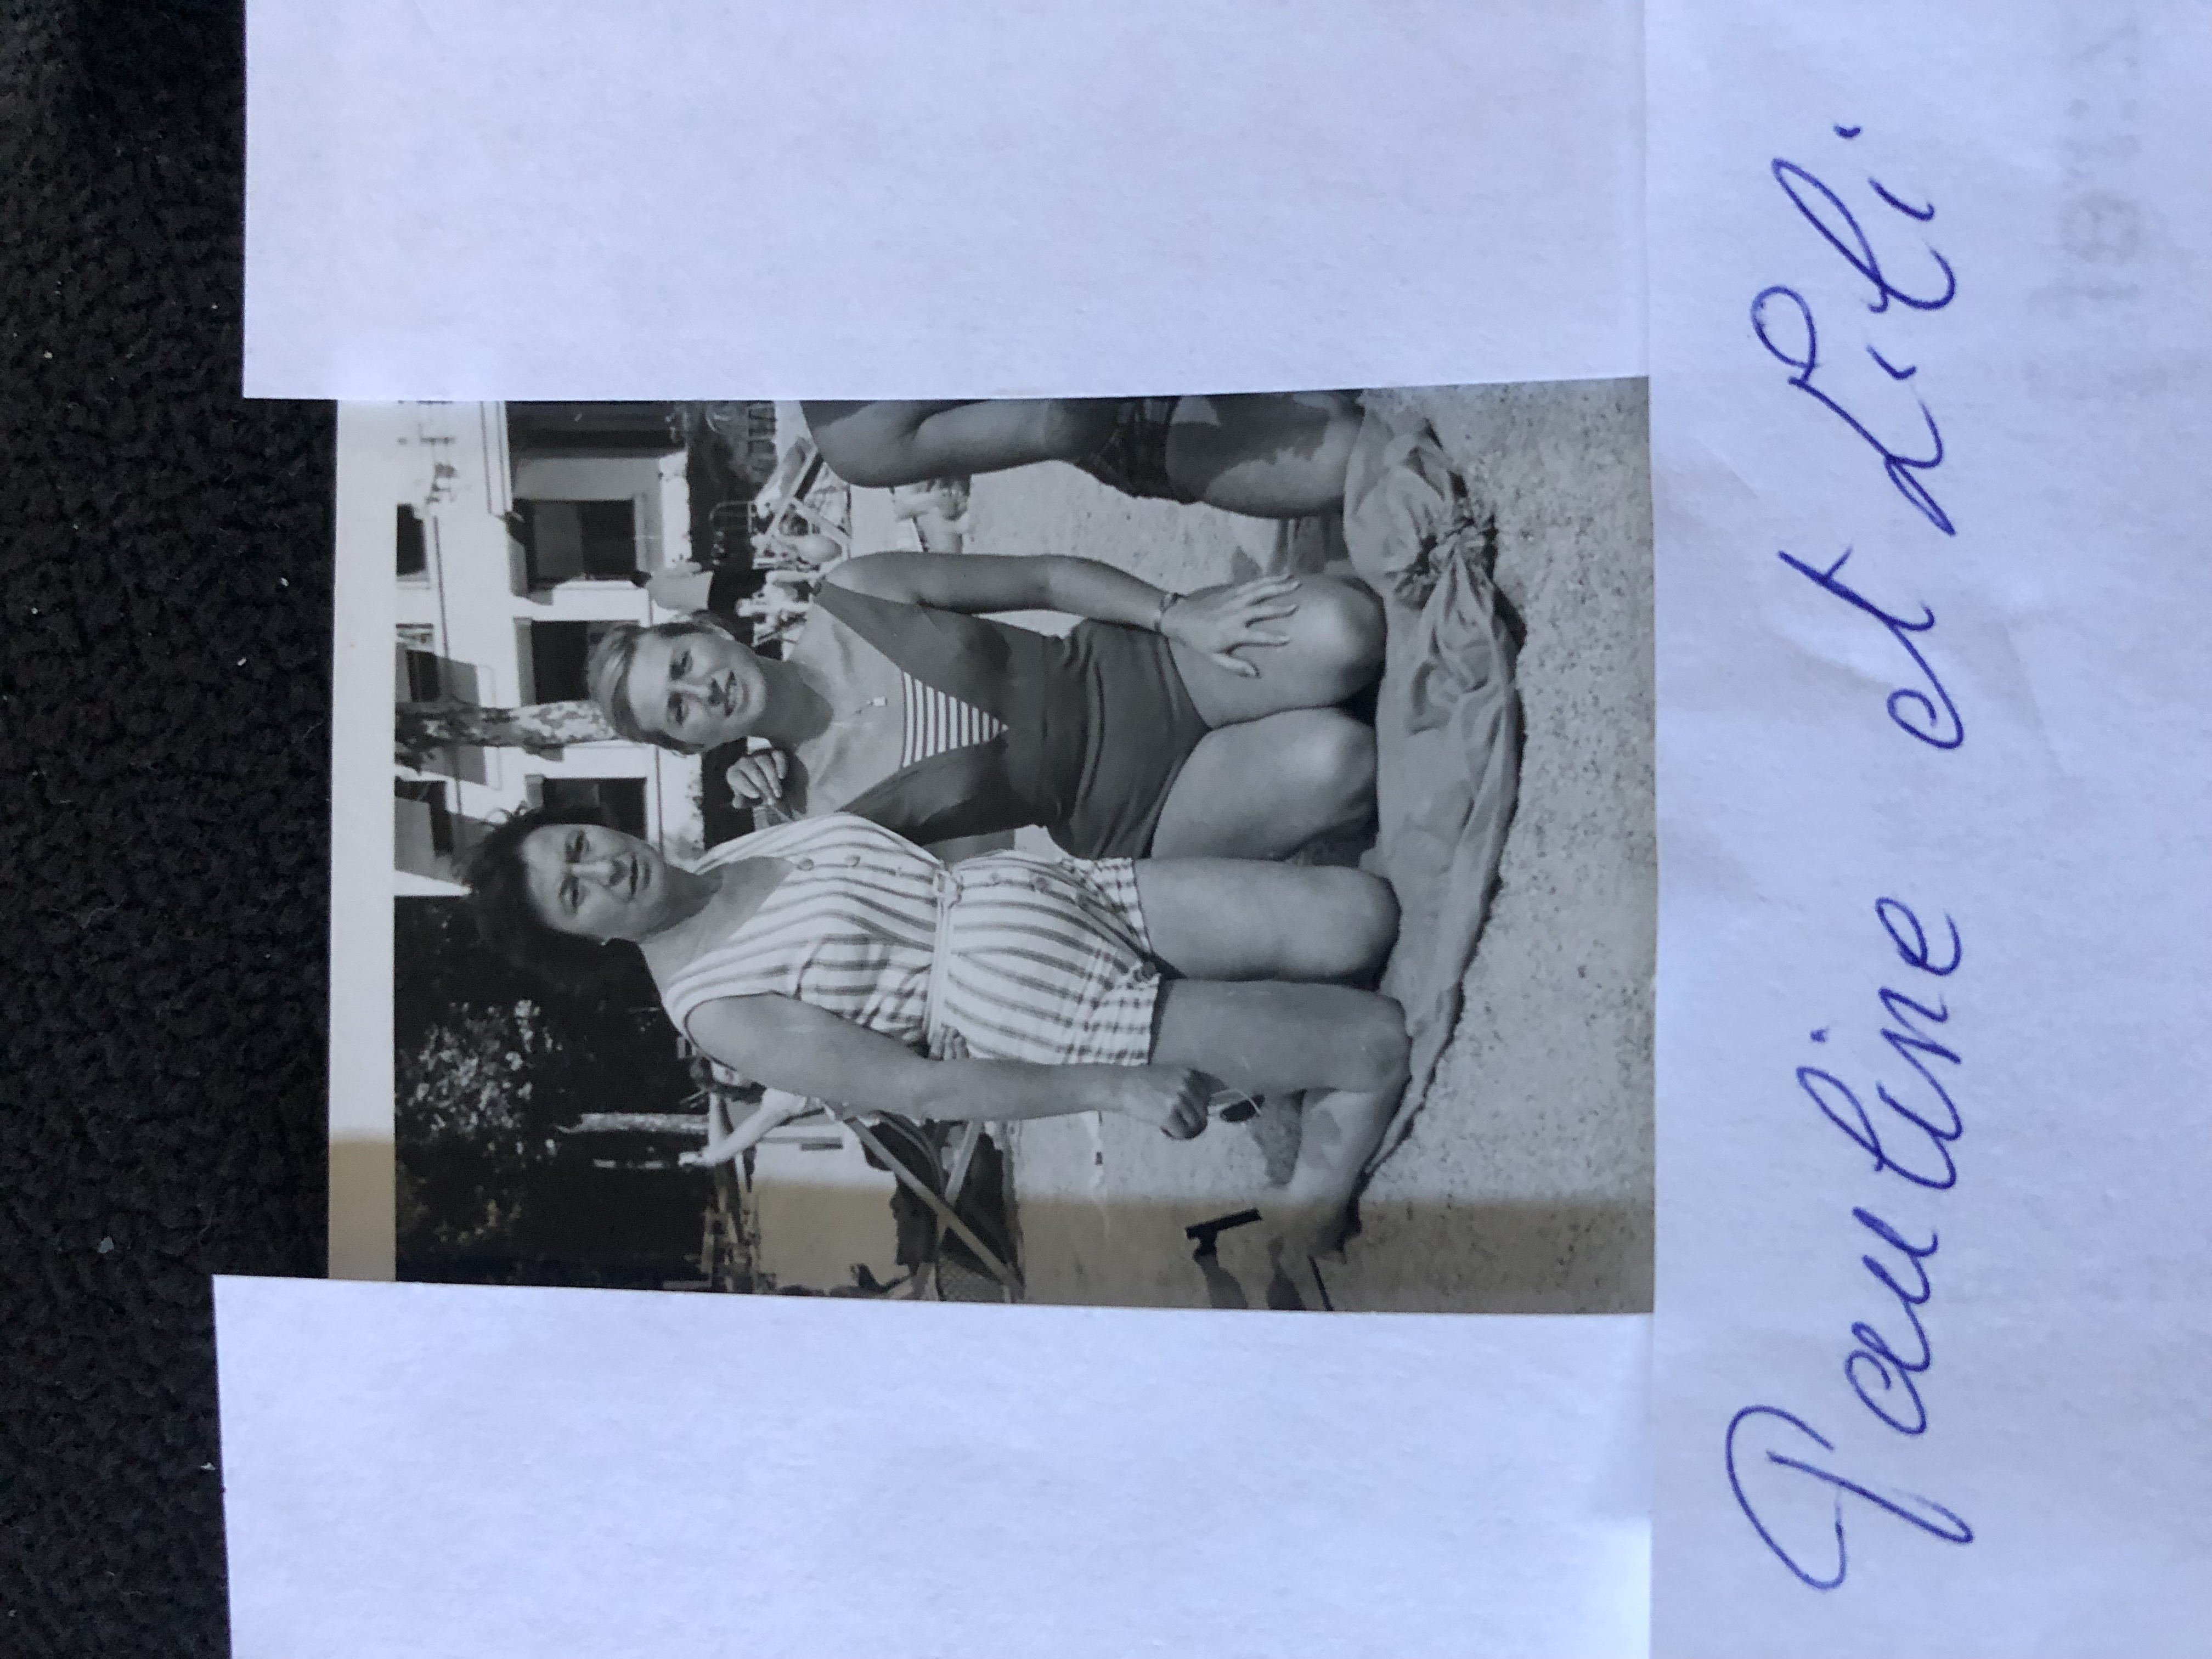 Pauline et Lili